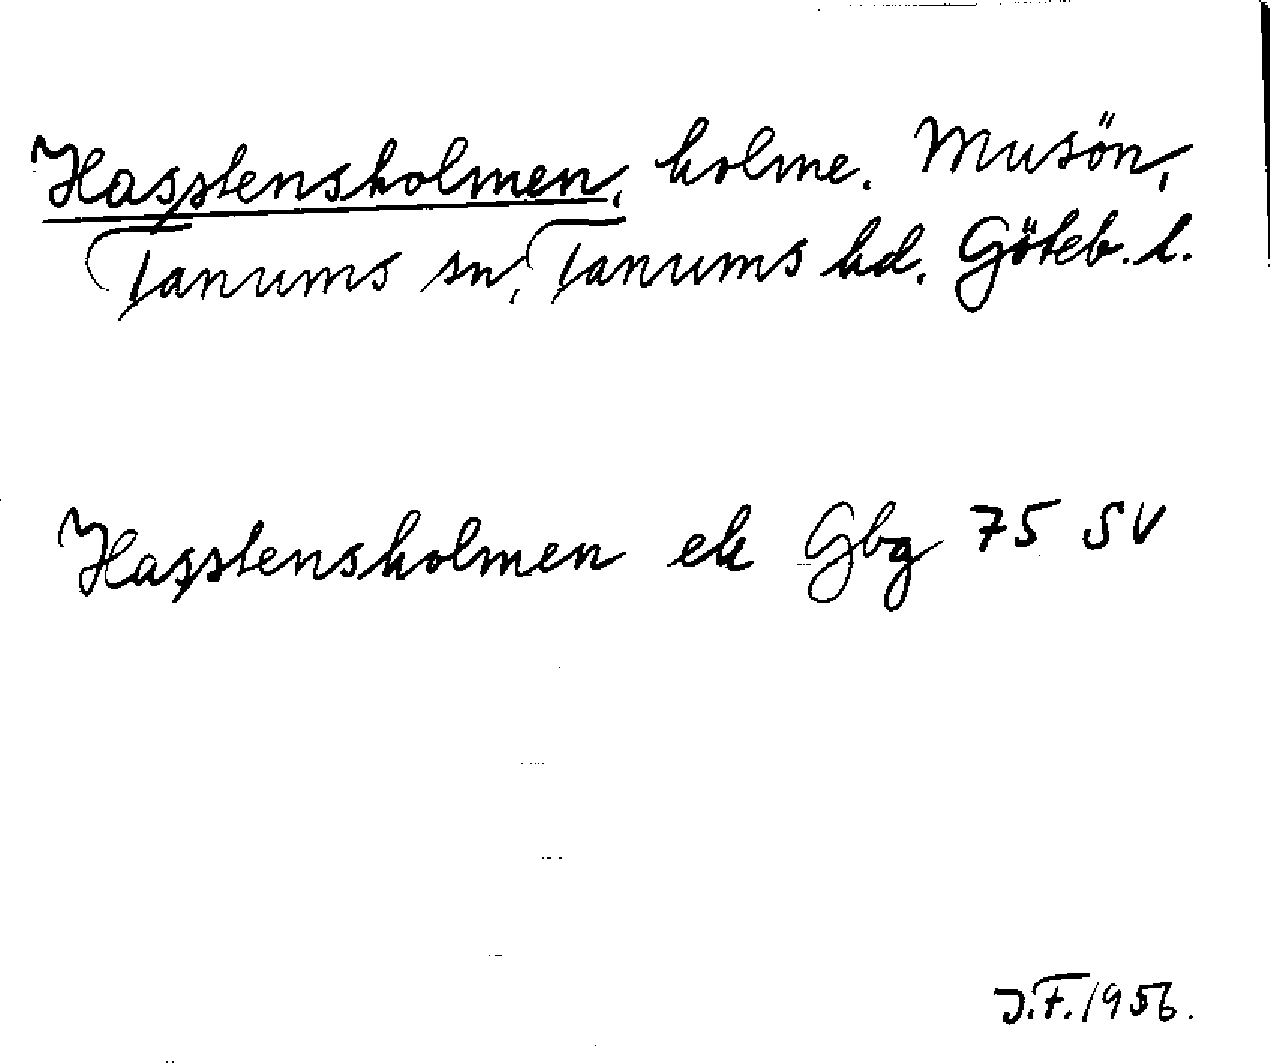 Hasstensholmen, holme. Musön,
Tanums sn, Tanums hd. Göteb. l.
Hasstensholmen ek Gbg 75 SV
J.F. 1956.